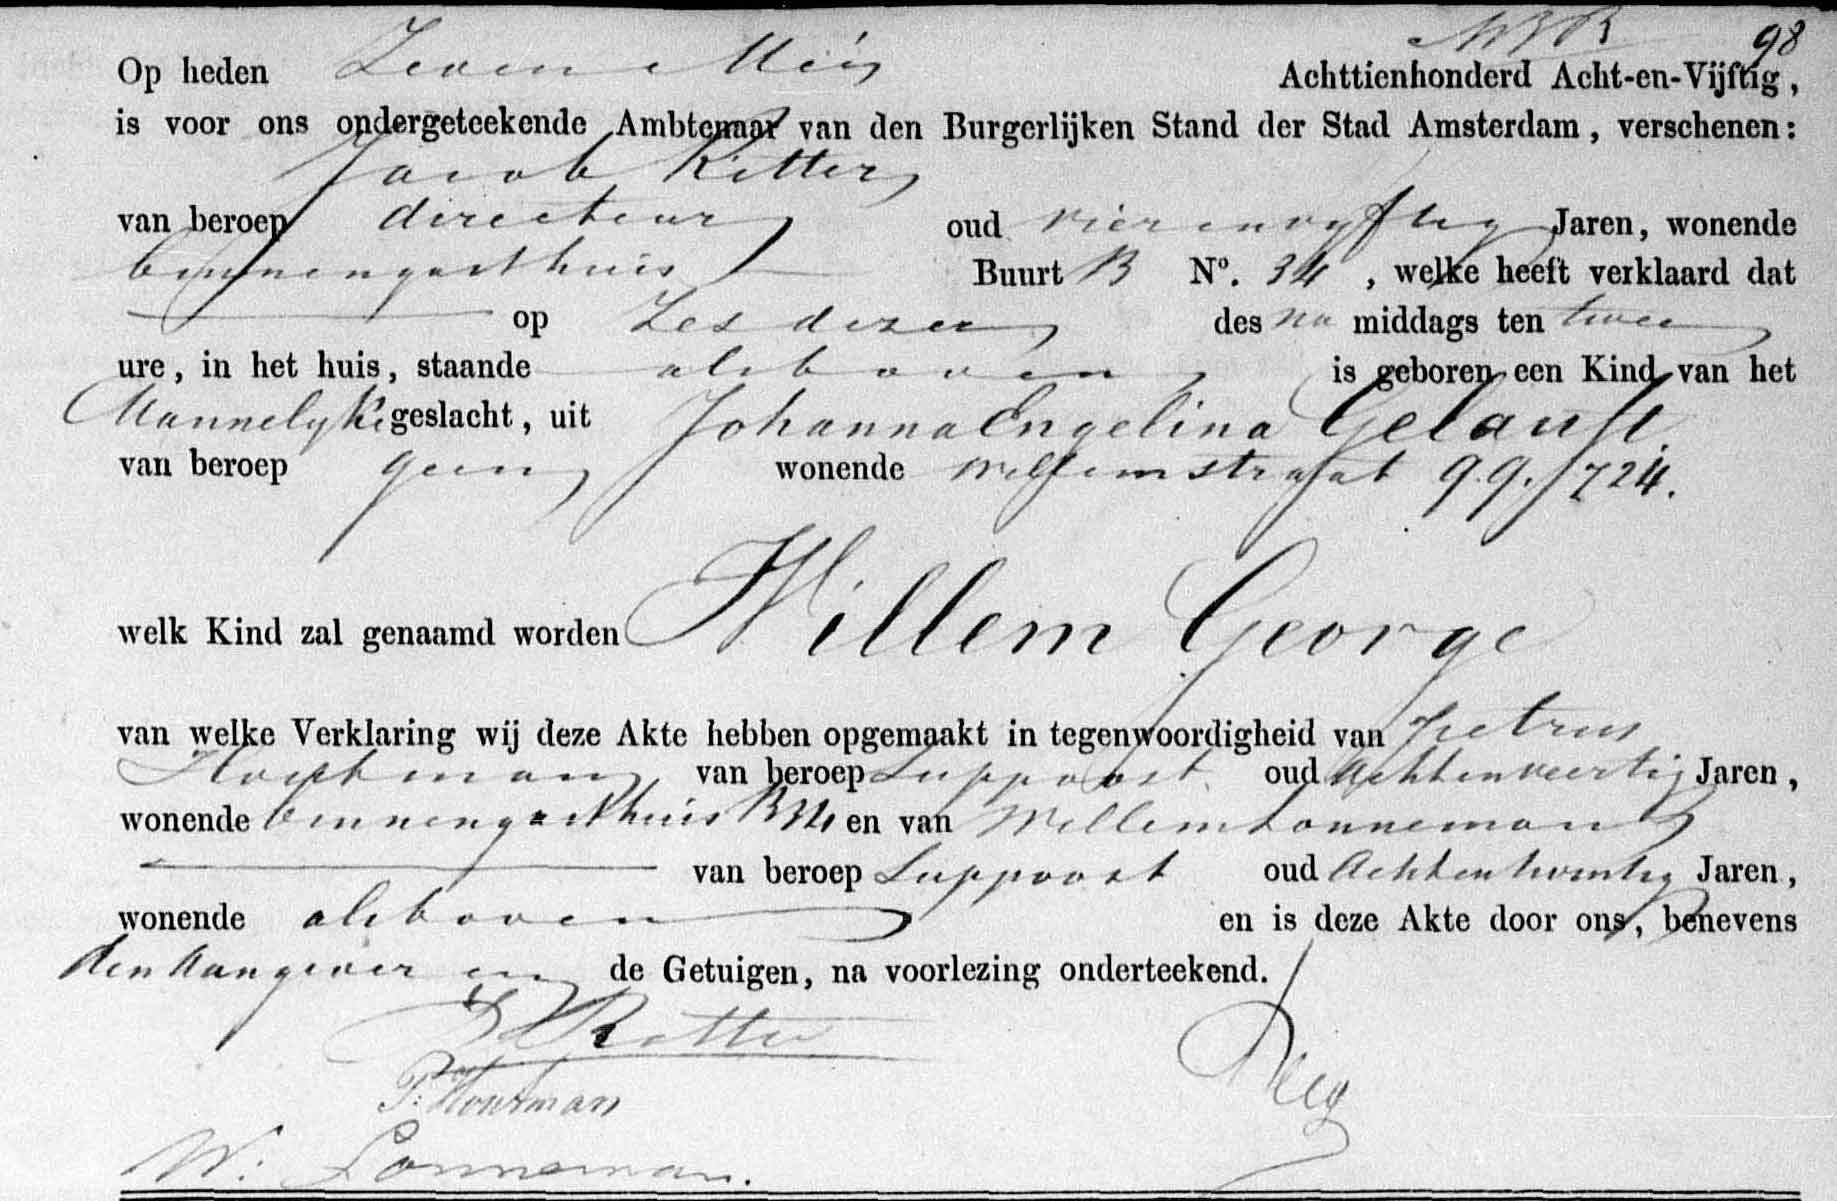 98
Op heden Zeven Mei Achttienhonderd Acht-en-Vijftig,
is voor ons ondergeteekende Ambtenaar van den Burgerlijken Stand der Stad Amsterdam, verschenen:
Jacob Ritter
van beroep directeur oud vier en vyftig Jaren, wonende
binnengasthuis Buurt B No. 34, welke heeft verklaard dat
op Zes dezer des na middags ten twee
ure, in het huis, staande als boven is geboren een Kind van het
Mannelyke geslacht, uit Johanna Engelina
van beroep geen wonende Willemstraat 99/724.
welk Kind zal genaamd worden Willem George
van welke Verklaring wij deze Akte hebben opgemaakt in tegenwoordigheid van Petrus
van beroep Suppoost oud Achtenveertig Jaren,
wonende binnengasthuis B34 en van Willem Lonneman
van beroep Suppoost oud Achtentwintig Jaren,
wonende als boven en is deze Akte door ons, benevens
den Aangever en de Getuigen, na voorlezing onderteekend.
Ritter
W. Lonneman.